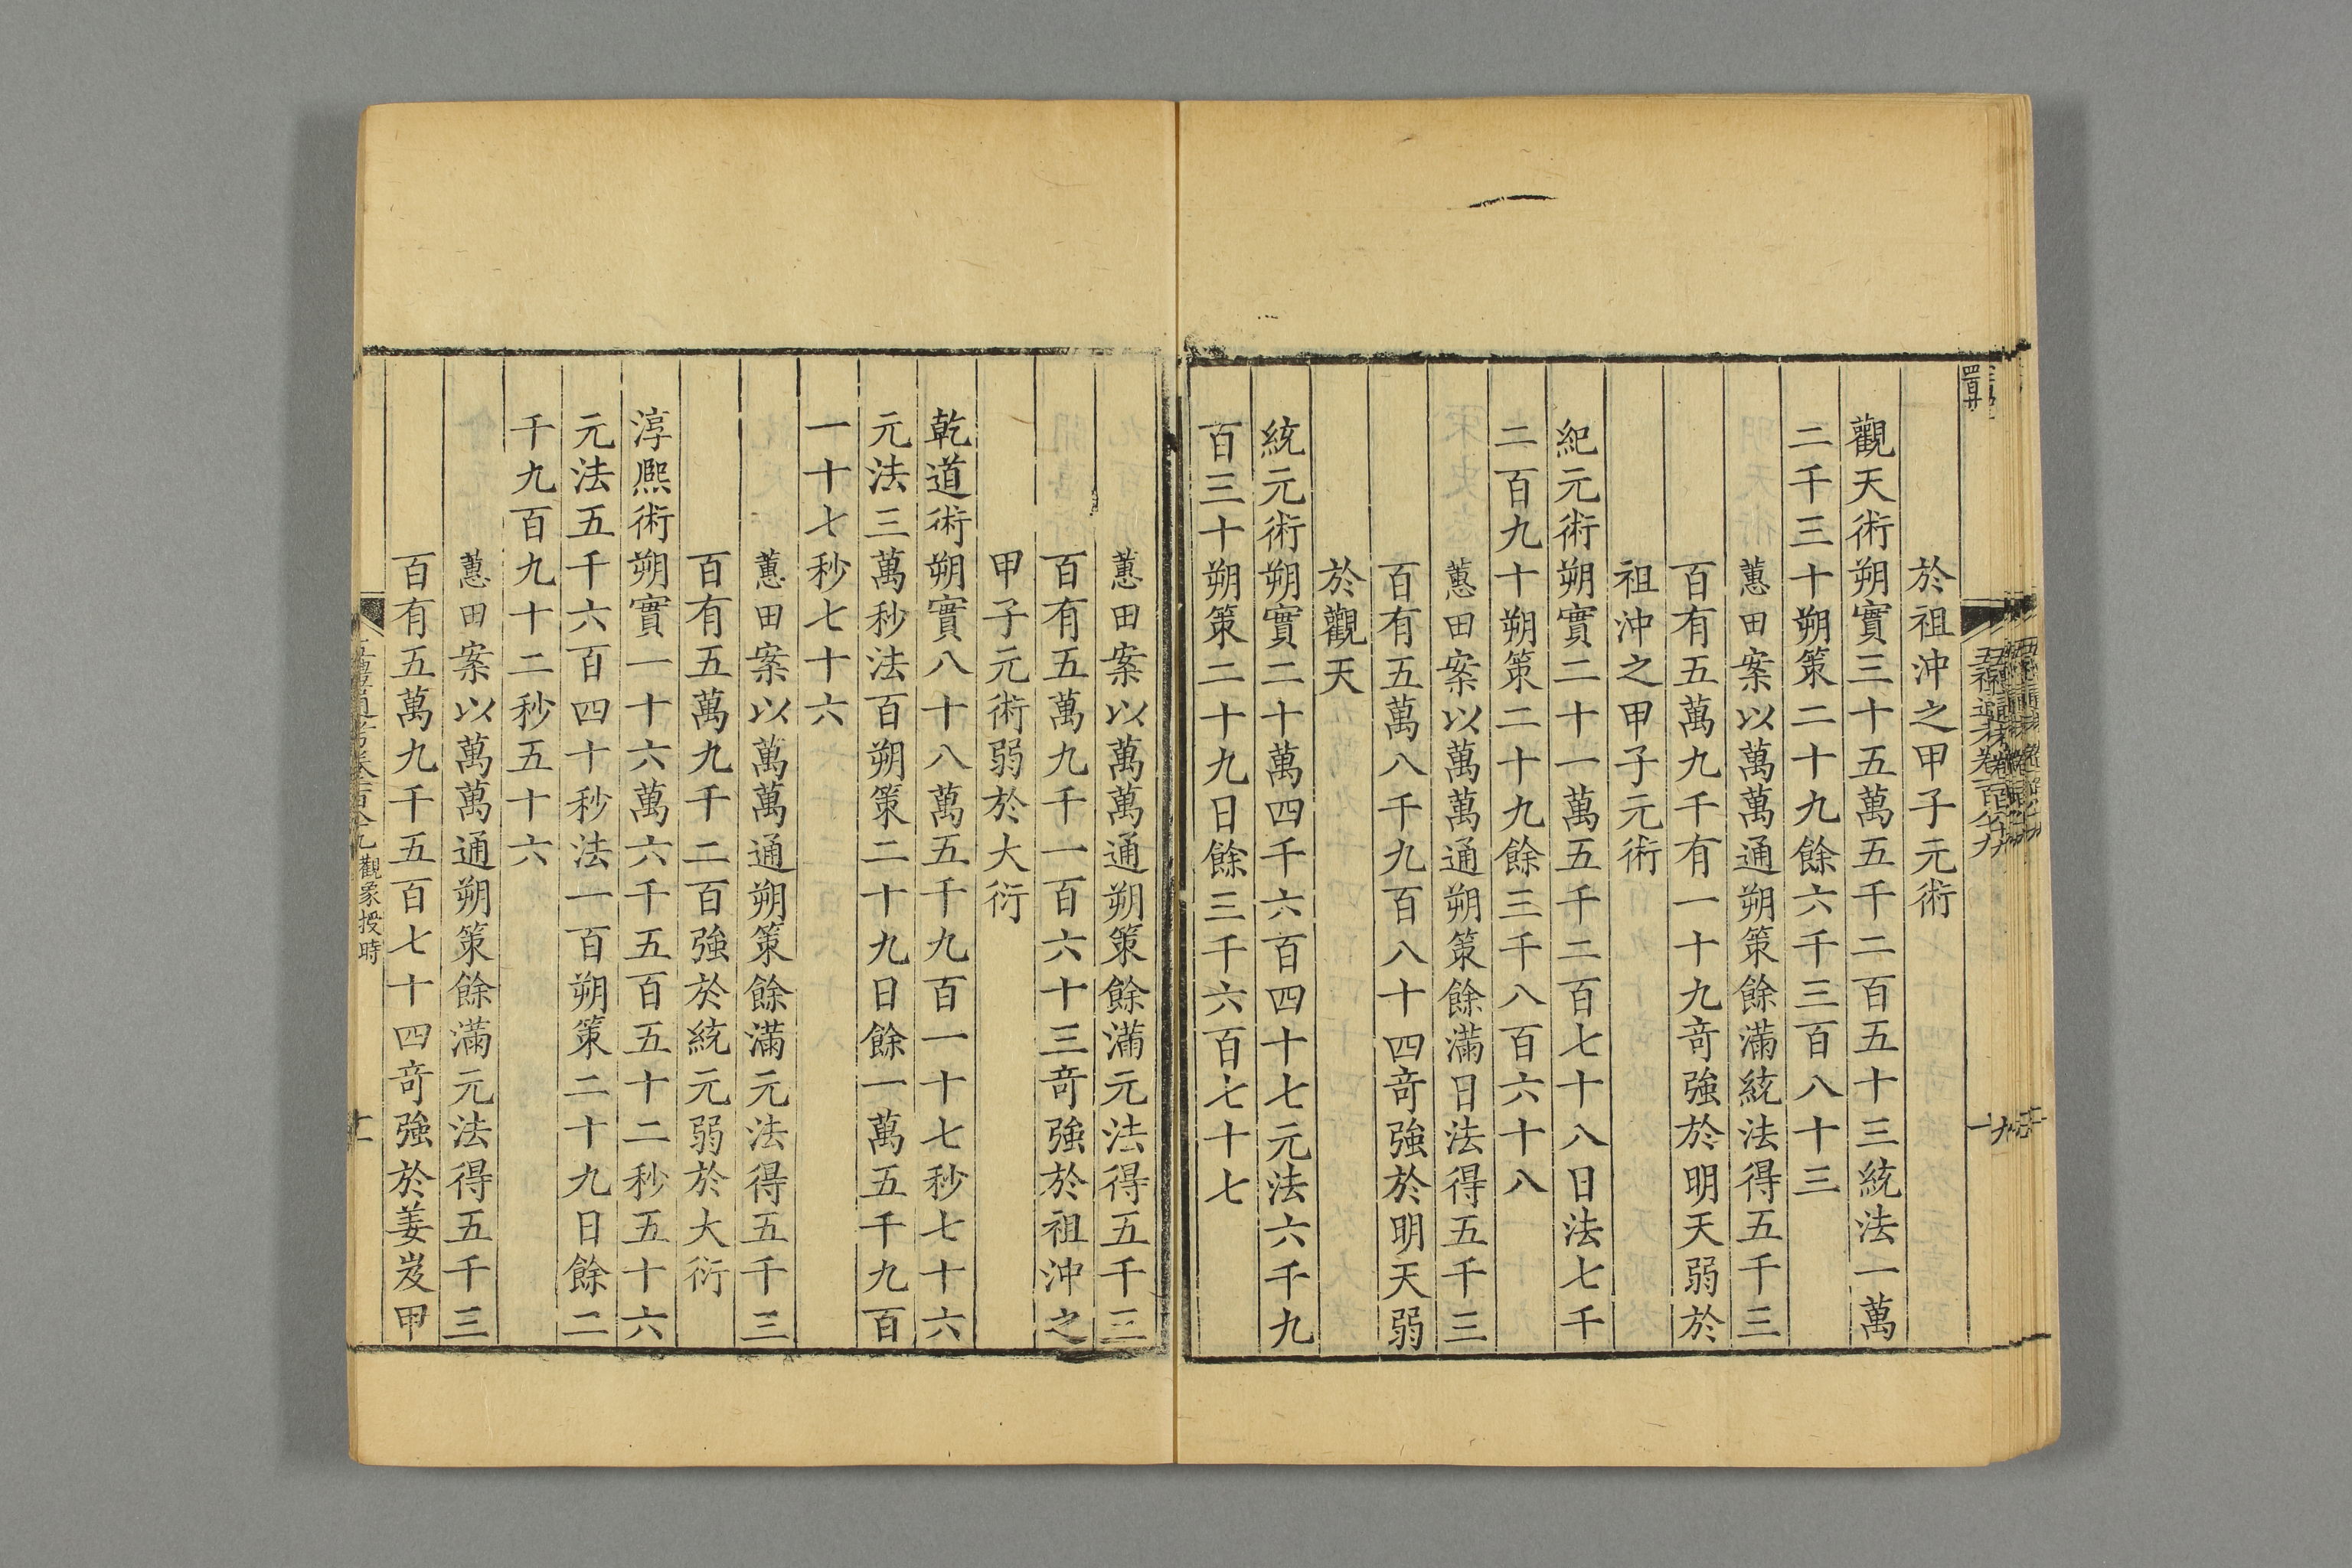 於祖沖之甲子元術
觀天術朔實三十五萬五千二百五十三統法一萬
二千三十朔策二十九餘六千三百八十三
蕙田案以萬萬通朔策餘滿統法得五千三
百有五萬九千有一十九竒強於明天弱於
祖沖之甲子元術
紀元術朔實二十一萬五千二百七十八日法七千
二百九十朔策二十九餘三千八百六十八
蕙田案以萬萬通朔策餘滿日法得五千三
百有五萬八千九百八十四竒強於明天弱
於觀天
統元術朔實二十萬四千六百四十七元法六千九
百三十朔策二十九日餘三千六百七十七
蕙田案以萬萬通朔策餘滿元法得五千三
百有五萬九千一百六十三竒強於祖沖之
甲子元術弱於大衍
乾道術朔實八十八萬五千九百一十七秒七十六
元法三萬秒法百朔策二十九日餘一萬五千九百
一十七秒七十六
蕙田案以萬萬通朔策餘滿元法得五千三
百有五萬九千二百強於統元弱於大衍
淳熙術朔實一十六萬六千五百五十二秒五十六
元法五千六百四十秒法一百朔策二十九日餘二
千九百九十二秒五十六
蕙田案以萬萬通朔策餘滿元法得五千三
百有五萬九千五百七十四竒強於姜岌甲
觀象授時